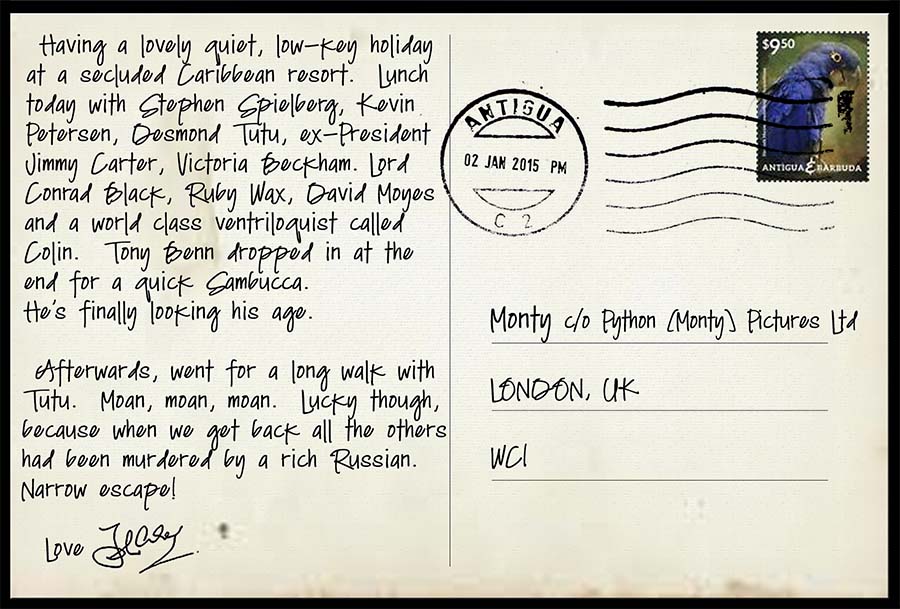 Having a lovely quiet, low-key holiday
at a secluded Caribbean resort. Lunch
today with Stephen Spielberg, Kevin
Petersen, Desmond Tutu, ex-President
Jimmy Carter, Victoria Beckham. Lord
Conrad Black, Ruby Wax, David Moyes
and a world class ventriloquist called
Colin. Tony Benn dropped in at the
end for a quick Sambucca.
He's finally looking his age.
Afterwards, went for a long walk with
Tutu. Moan, moan, moan. Lucky though,
because when we get back all the others
had been murdered by a rich Russian.
Narrow escape!
Love
ANTIGUA
02 JAN 2015 PM
C 2
$9.50
ANTIGUA & BARBUDA
Monty c/o Python (Monty) Pictures Ltd
LONDON, UK
WC1